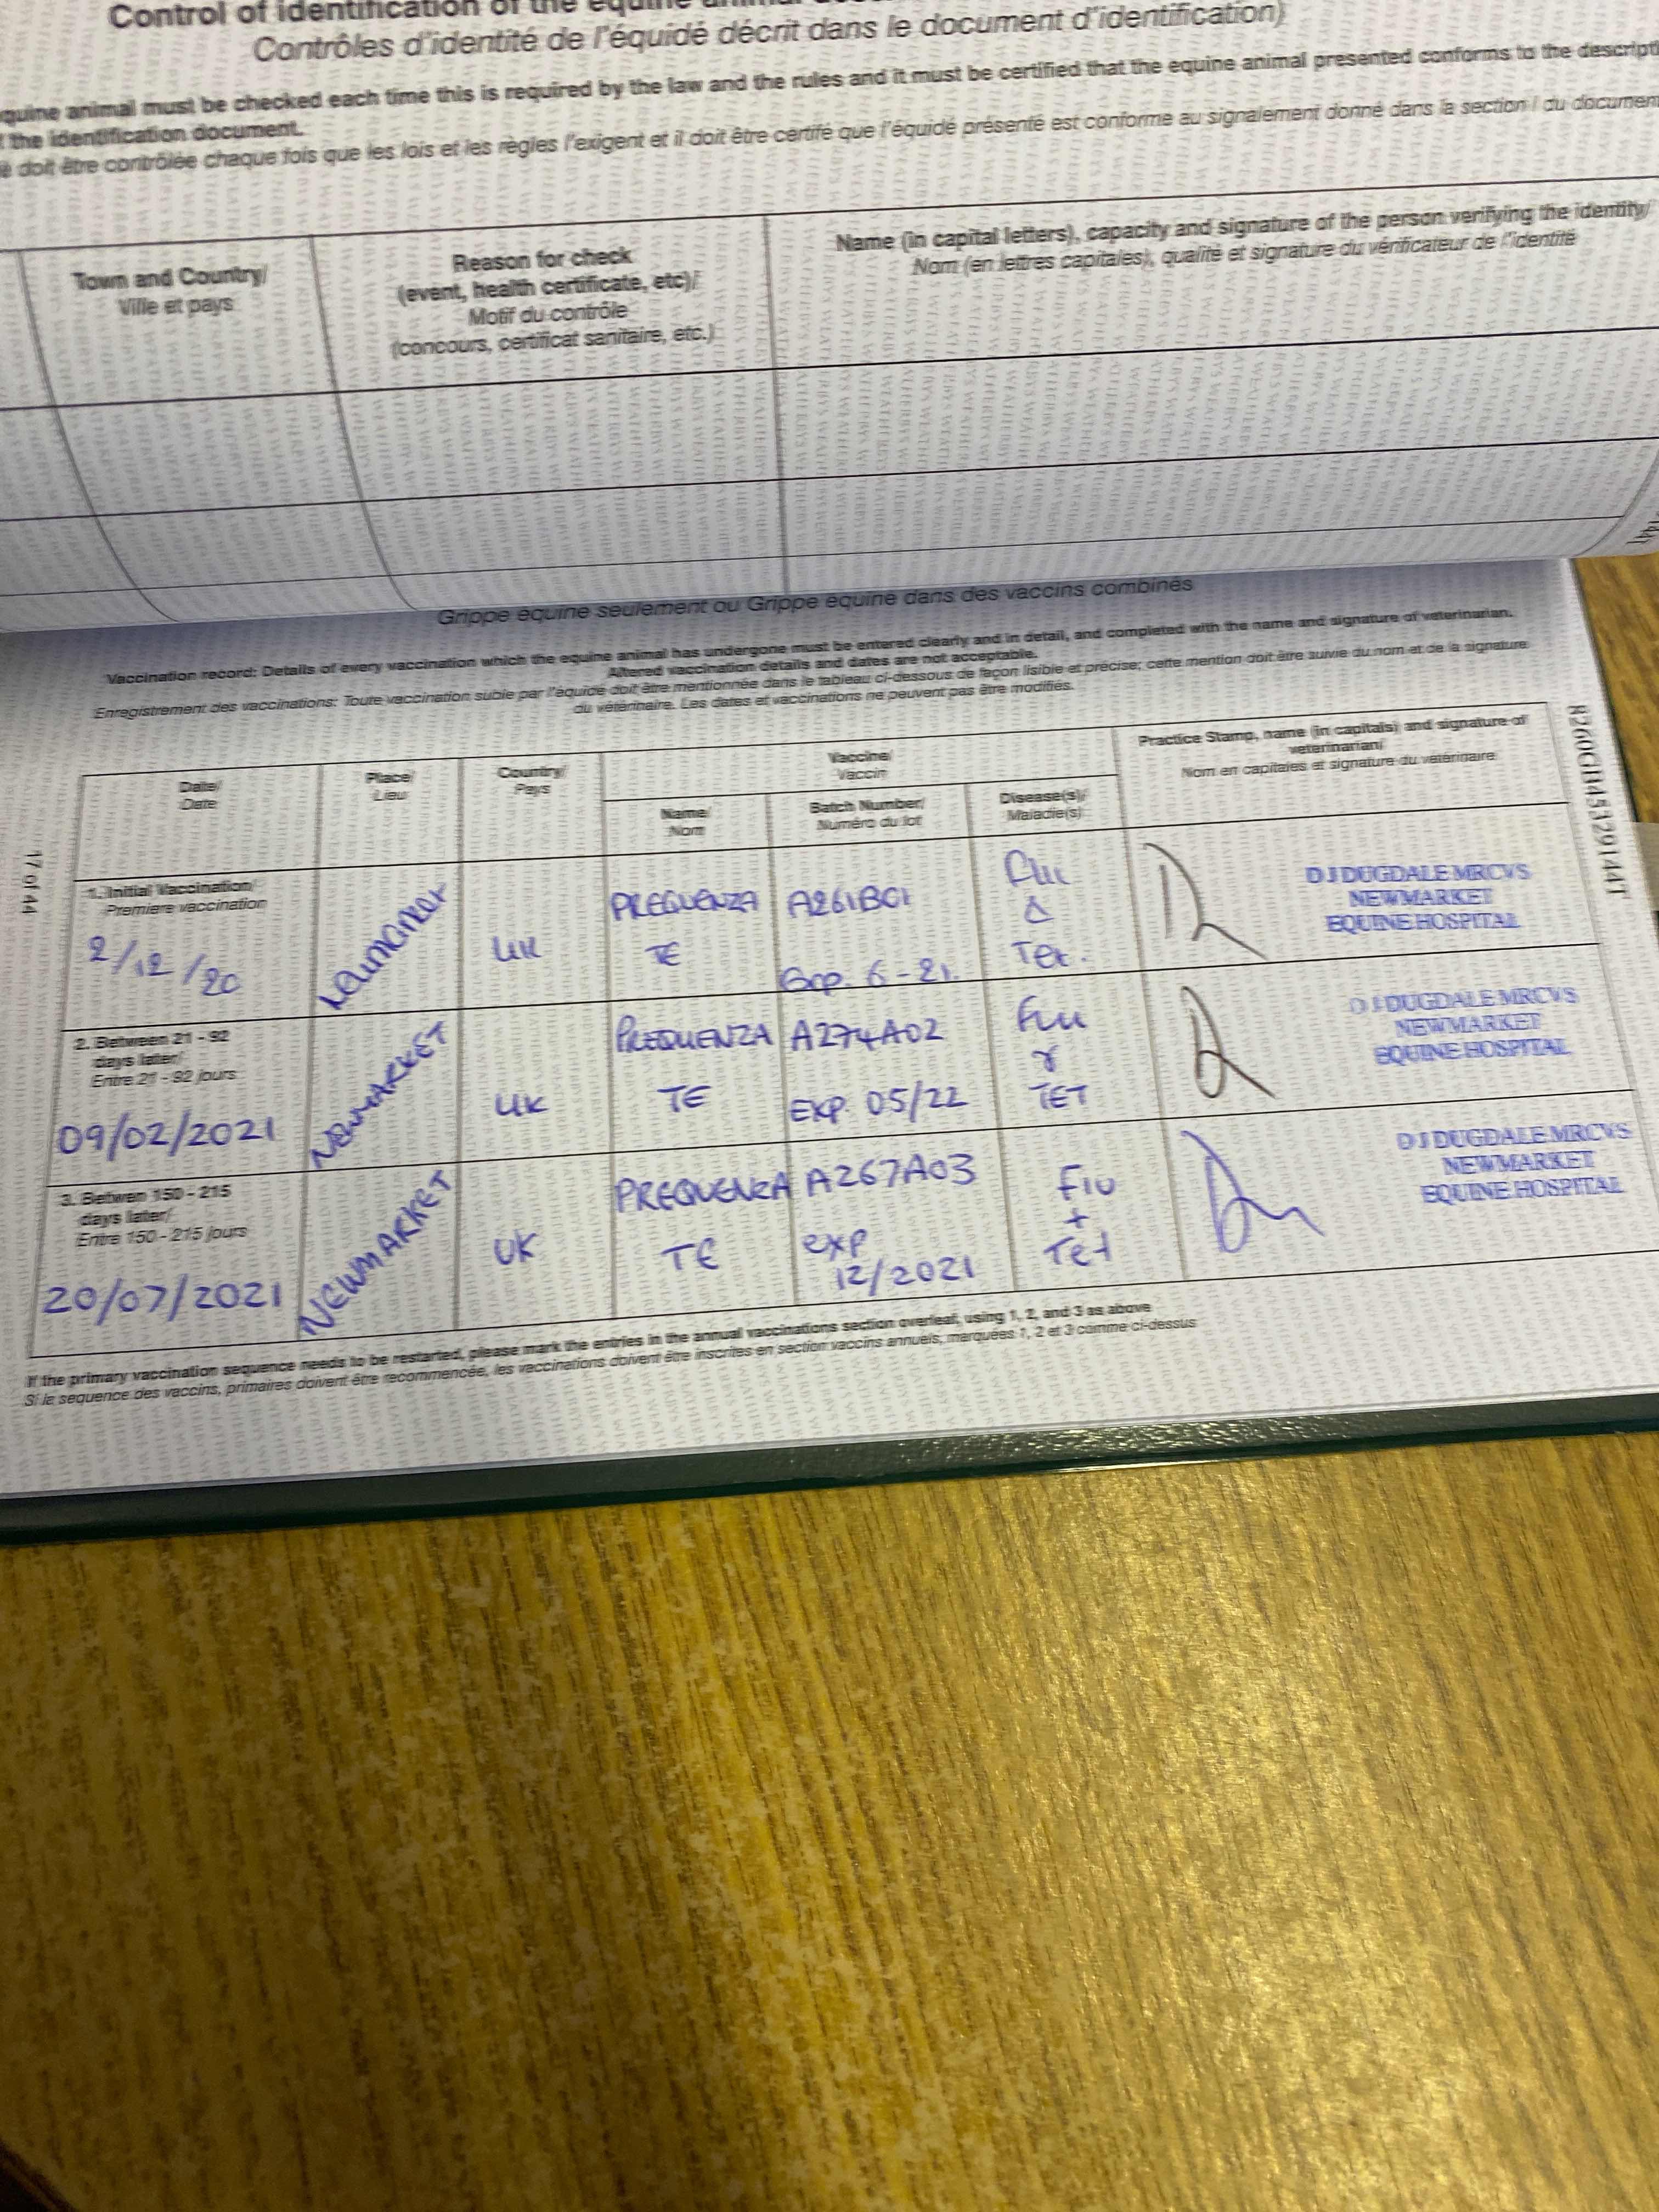 Control of identification of the equine
Contrôles d'identité de l'équidé décrit dans le document d'identification)
quine animal must be checked each time this is required by the law and the rules and it must be certified that the equine animal presented conforms to the descripti
the identification document.
é doit être contrôlée chaque fois que les lois et les règles l'exigent et il doit être certifé que l'équidé présenté est conforme au signalement donné dans la section I du documen
Town and Country/
Ville et pays
Reason for check
(event, health certificate, etc)/
Motif du contrôle
(concours, certificat sanitaire, etc.)
Name (in capital letters), capacity and signature of the person verifying the identity/
Nom (en lettres capitales), qualité et signature du vérificateur de l'identité
Grippe équine seulement ou Grippe équine dans des vaccins combinés
Vaccination record: Details of every vaccination which the equine animal has undergone must be entered clearly and in detail, and completed with the name and signature of veterinarian.
Altered vaccination details and dates are not acceptable.
Enregistrement des vaccinations: Toute vaccination subie par l'équidé doit être mentionnée dans le tableau ci-dessous de façon lisible et précise; cette mention doit être suivie du nom et de la signature
du vétérinaire. Les dates et vaccinations ne peuvent pas être modifiés.
Date/
Date
Place/
Lieu
Country/
Pays
Vaccine/
Vaccin
Name/
Nom
Batch Number/
Numéro du lot
Disease(s)/
Maladie(s)
Practice Stamp, name (in capitals) and signature of
veterinarian/
Nom en capitales et signature du vétérinaire
1. Initial Vaccination/
Premiere vaccination
2/12/20
UK
PREQUENZA
TE
A261B01
Exp. 6-21.
Flu
&
Tet.
D J DUGDALE MRCVS
NEWMARKET
EQUINE HOSPITAL
2. Between 21 - 92
days later/
Entre 21 - 92 jours
09/02/2021
NEWMARKET
UK
PREQUENZA
TE
A274A02
EXP. 05/22
Flu
&
TET
D J DUGDALE MRCVS
NEWMARKET
EQUINE HOSPITAL
3. Betwen 150 - 215
days later/
Entre 150 - 215 jours
20/07/2021
NEWMARKET
UK
PREQUENZA
TE
A267A03
exp
12/2021
Flu
+
Tet
D J DUGDALE MRCVS
NEWMARKET
EQUINE HOSPITAL
If the primary vaccination sequence needs to be restarted, please mark the entries in the annual vaccinations section overleaf, using 1, 2, and 3 as above
Si la sequence des vaccins, primaires doivent être recommencée, les vaccinations doivent être inscrites en section vaccins annuels, marquées 1, 2 et 3 comme ci-dessus
17 of 44